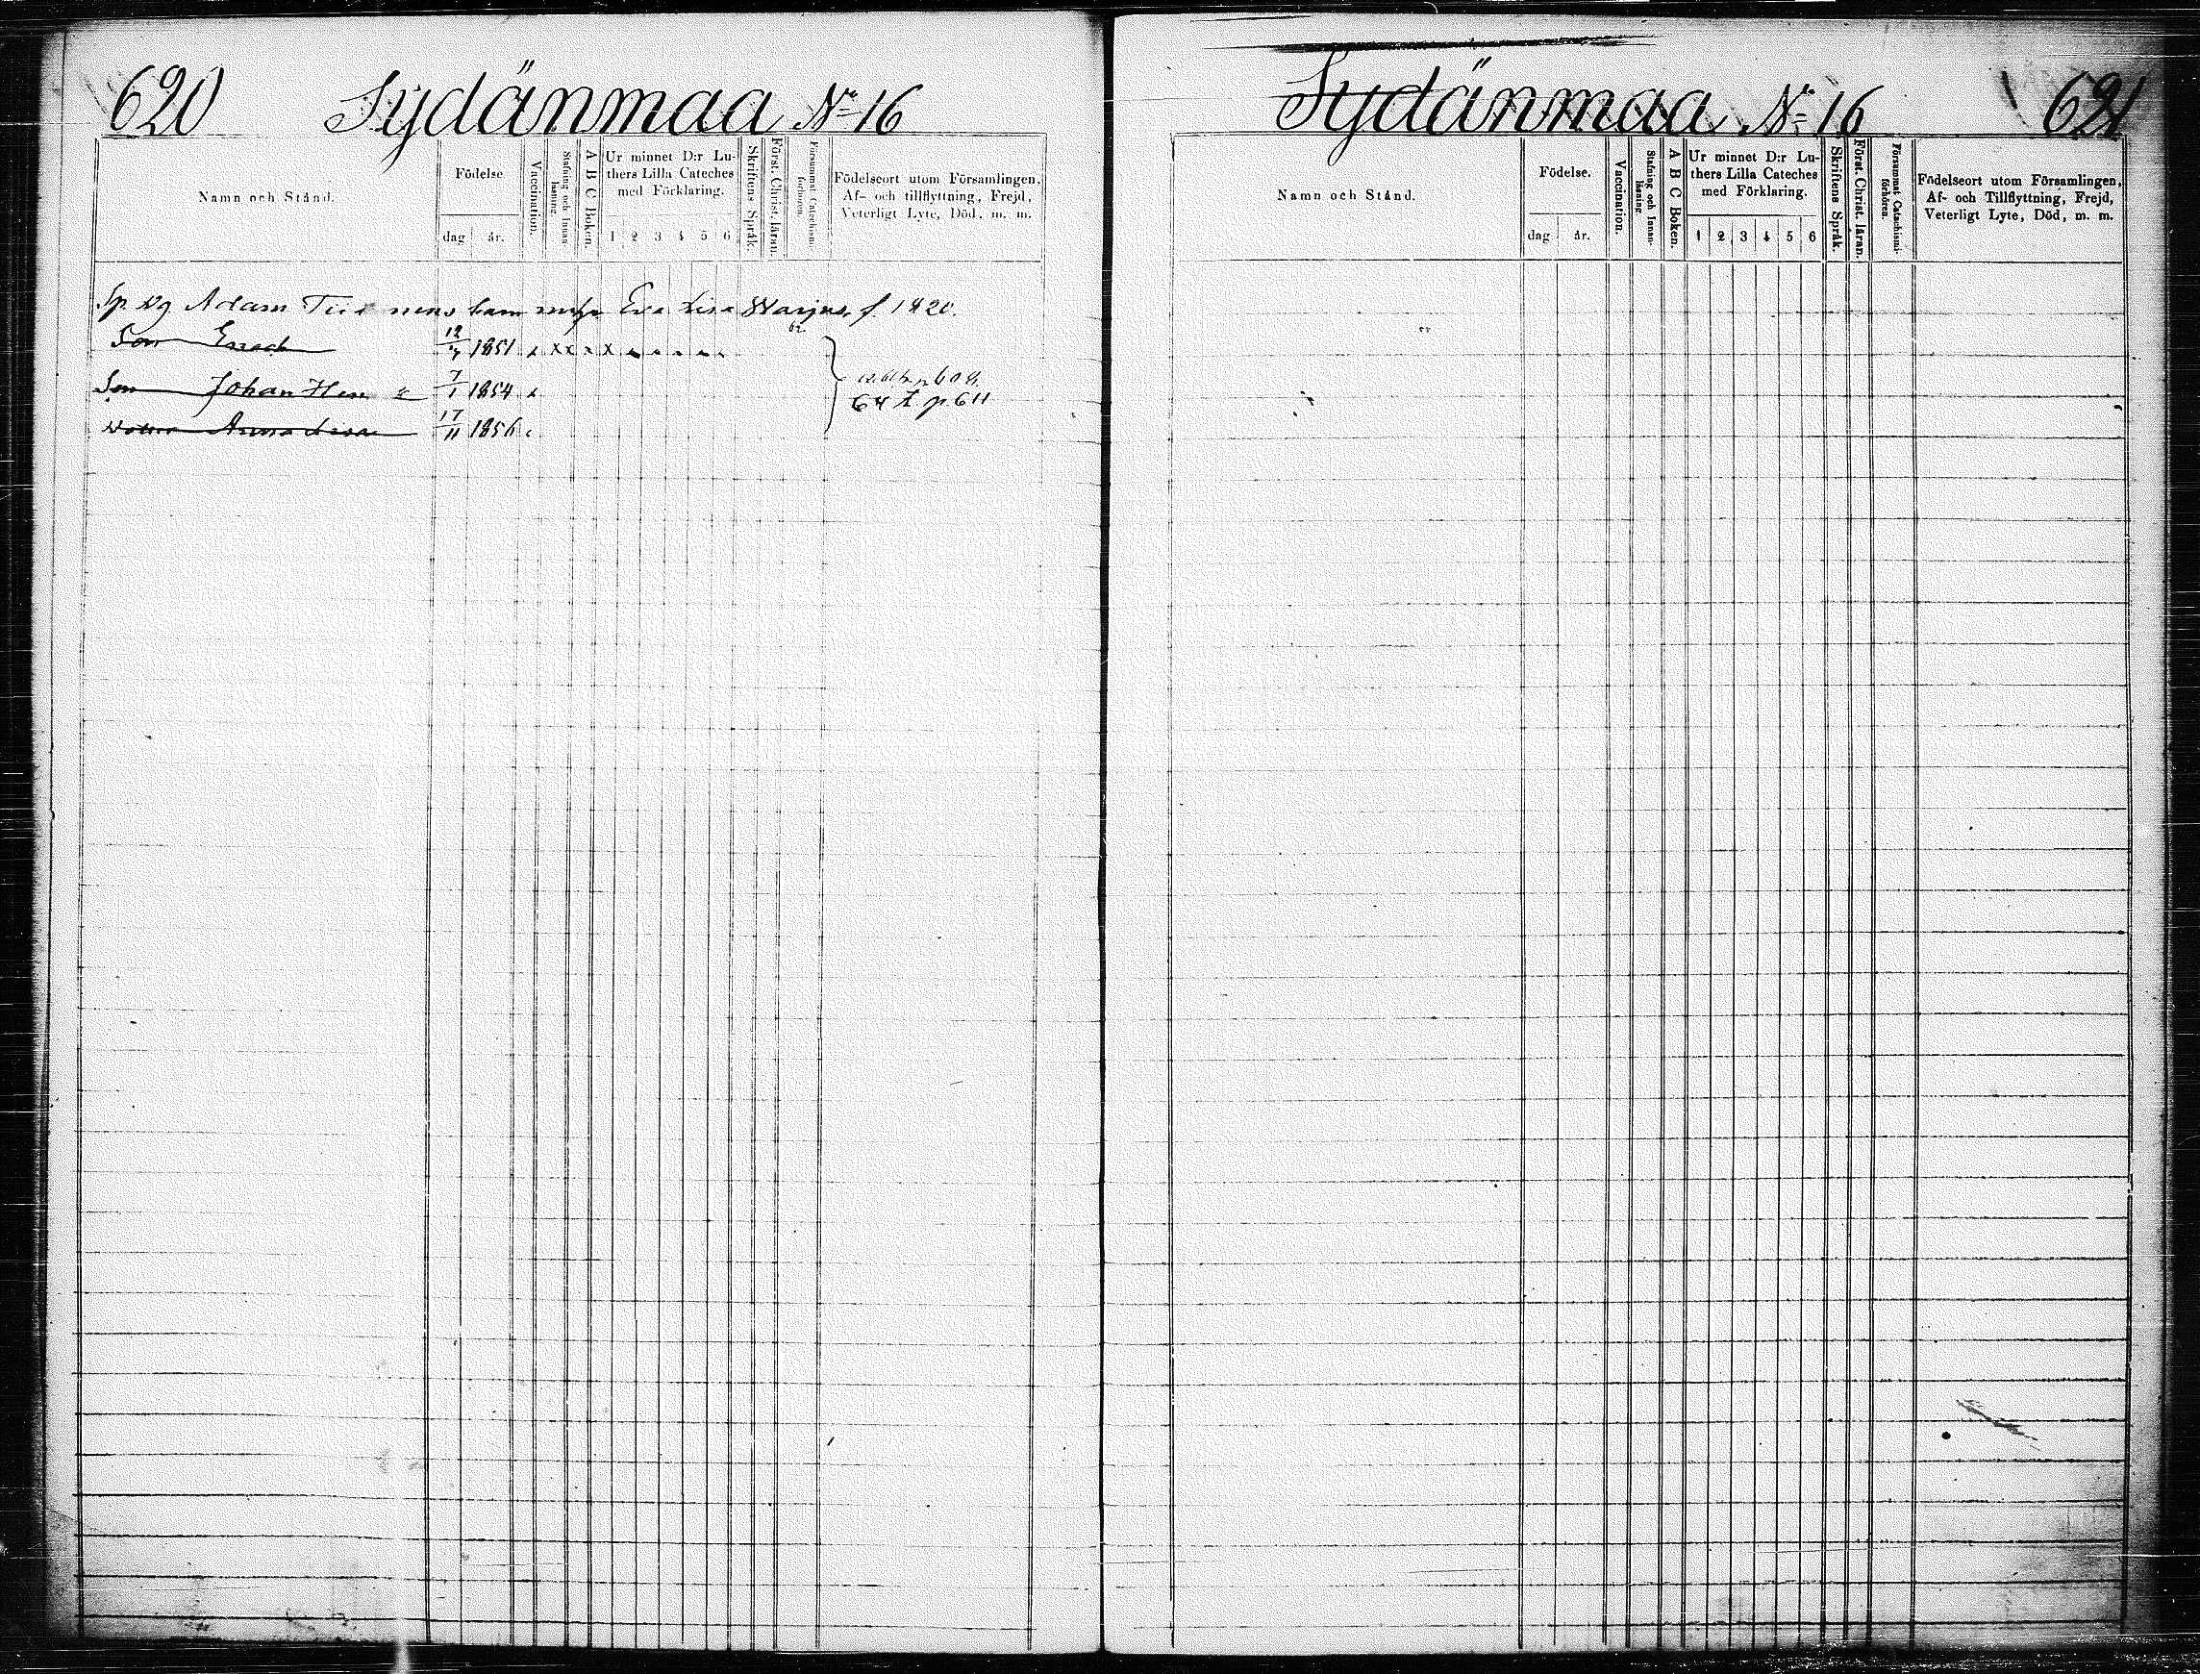 620 Sydänmaa No 16
Namn och Stånd.
Födelse
dag
år.
Vaccination.
Stafning och Innan-
läsning.
A B C Boken.
Ur minnet D:r Lu-
thers Lilla Cateches
med Förklaring.
1 2 3 4 5 6
Skriftens Språk.
Först. Christ. läran.
Försummat Catechismi-
förhören.
Födelseort utom Församlingen,
Af- och tillflyttning, Frejd,
Veterligt Lyte, Död, m. m.
Sp. Dg Adam Eva Lisa f. 1820.
Son Enoch 12 1851 x x x x x
Son Johan Hen 7/1 1854 x
Anna Lovisa 17/11 1856
64 p. 611
Sydänmaa No 16 621
Namn och Stånd.
Födelse.
dag
år.
Vaccination.
Stafning och Innan-
läsning
A B C Boken.
Ur minnet D:r Lu-
thers Lilla Cateches
med Förklaring.
1 2 3 4 5 6
Skriftens Språk.
Först. Christ. läran.
Försummat Catechismi-
förhören.
Födelseort utom Församlingen,
Af- och Tillflyttning, Frejd,
Veterligt Lyte, Död, m. m.